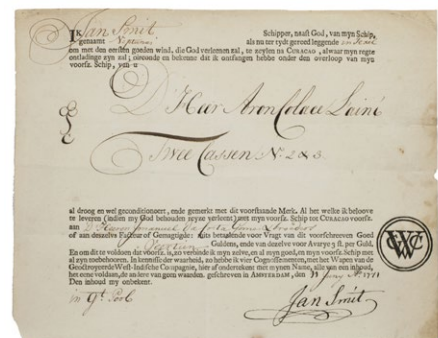 IK Jan Smit Schipper, naast God, van myn Schip,
genaamt Neptunus als nu ter tydt gereed leggende in Texel
om met den eersten goeden wind, die God verleenen zal, te zeylen na CURACAO, alwaar myn regte
ontladinge zyn zal; oirconde en bekenne dat ik ontfangen hebbe onder den overloop van myn
voorsz. Schip, van u
D'Heer Aron Colace Lainé
Twee Cassen N: 2 & 3.
al droog en wel geconditioneert, ende gemerkt met dit voorstaande Merk. Al het welke ik belove
te leveren (indien my God behouden reyze verleent) met myn voorsz. Schip tot CURACAO voorsz.
aan D'Heeren Emanuel Da Costa
of aan deszelvs Facteur of Gemagtigde: mits betalende voor Vragt van dit voorschreeven Goed
Guldens, ende van dezelve voor Averye 3 st. per Guld.
En om dit te voldoen dat voorsz. is, zo verbinde ik myn zelve, en al myn goed, en myn voorsz. Schip met
al zyn toebehooren. In kennisse der waarheid, zo hebbe ik vier Cognossementen, met het Wapen van de
Geoctroyeerde West-Indische Compagnie, hier of ondertekent met mynen Name, alle van een inhoud,
het eene voldaan, de andere van geen waarden. geschreven in AMSTERDAM, den
Den inhoud my onbekent.
GWC
Jan Smit